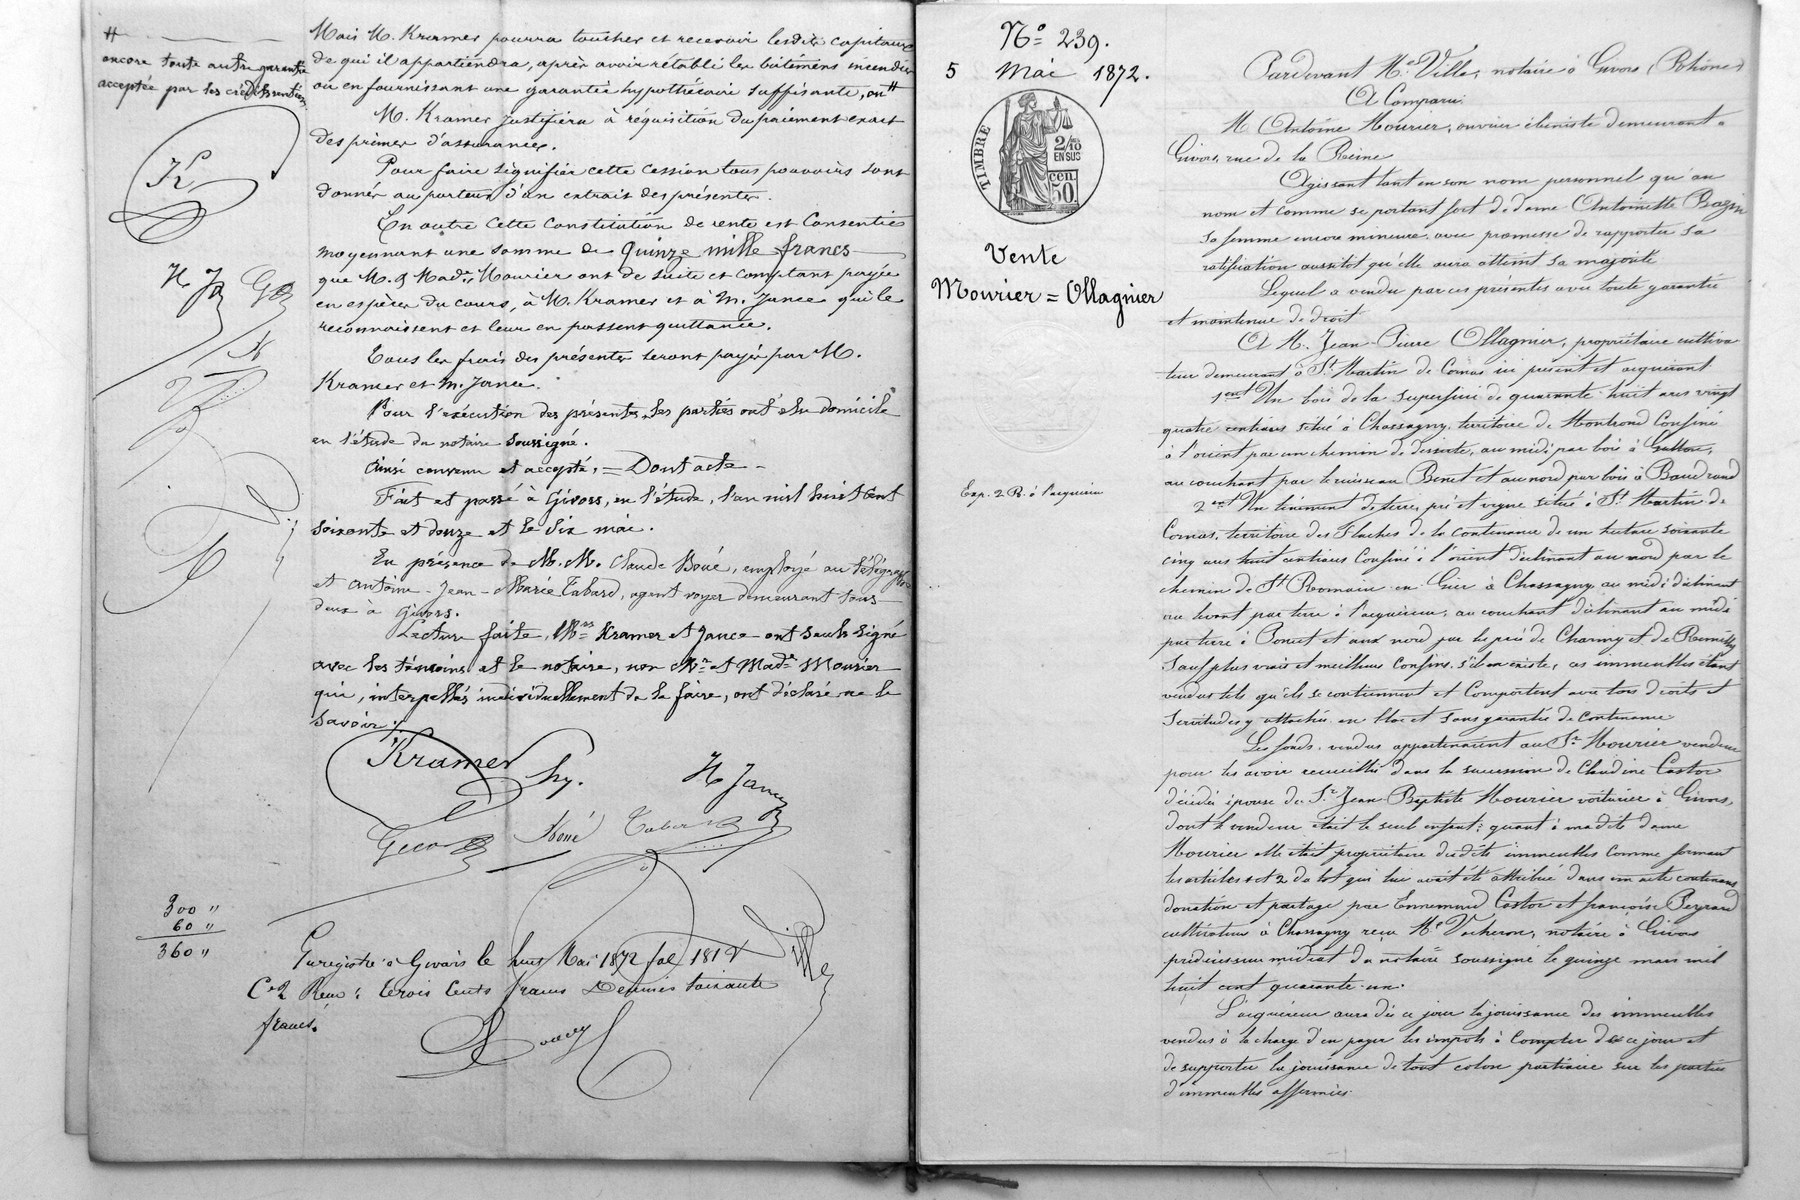 #
encore toute autre garantie
acceptée par les crédirentiers
Mais M. Kramer pourra toucher et recevoir lesdits capitaux
de qui il appartiendra, après avoir rétabli les bâtiments incendiés
ou en fournissant une garantie hypothécaire suffisante, ou #
M. Kramer justifiera à réquisition du paiement exact
des primes d'assurances.
Pour faire signifier cette cession tous pouvoirs sont
donnés au porteur d'un extrait des présentes.
En outre cette Constitution de rente est Consentie
moyennant une somme de quinze mille francs
que M. & Made Mourier ont de suite et comptant payée
en espèces du cours, à M. Kramer et à M. Jance qui le
reconnaissent et leur en passent quittance.
Tous les frais des présentes seront payés par M.
Kramer et M. Jance.
Pour l'exécution des présentes, les parties ont élu domicile
en l'étude du notaire soussigné.
Ainsi convenu et accepté, = Dont acte -
Fait et passé à Givors, en l'étude, l'an mil huit cent
soixante et douze et le six mai.
En présence de M. M. Claude Boué, employé au télégraphe
et Antoine-Jean-Marie Tabard, agent voyer demeurant tous
deux à Givors.
Lecture faite, Mrs Kramer et Jance ont seuls signé
avec les témoins et le notaire, non Mr et Made Mourier
qui, interpellés individuellement de le faire, ont déclaré ne le
savoir.
Kramer
H Jance
Boué
Tabard
300 "
60 "
360 "
Enregistré à Givors le huit Mai 1872 fol 181 V
Ce 2 Reçu : trois cents francs Decimes soixante
francs.
Ville
No 239.
5 Mai 1872.
TIMBRE
2/10
EN SUS
50 cen.
Vente
Mourier = Ollagnier
Exp. 2 R. à l'acquéreur
Pardevant Me Ville, notaire à Givors (Rhône)
A Comparu
M. Antoine Mourier, ouvrier ébéniste demeurant à
Givors, rue de la Reine
Agissant tant en son nom personnel qu'au
nom et comme se portant fort de dame Antoinette
sa femme encore mineure avec promesse de rapporter sa
ratification aussitôt qu'elle aura atteint sa majorité
Lequel a vendu par ces présentes avec toute garantie
et maintenue de droit
A M. Jean-Pierre Ollagnier, propriétaire cultiva
teur demeurant à St Martin de Cornas ici présent et acquérant
1ent Un bois de la superficie de quarante-huit ares vingt
quatre centiares situé à Chassagny, territoire de Montrond Confiné
à l'orient par un chemin de desserte, au midi par bois à
au couchant par le ruisseau Benet et au nord par bois à Baudrand
2ent Un tènement de terre, pré et vigne situé à St Martin de
Cornas, territoire des Flaches de la contenance de un hectare soixante
cinq ares huit centiares Confiné : l'orient déclinant au nord par le
chemin de St Romain-en-Gier à Chassagny, au midi déclinant
au levant par terre à l'acquéreur, au couchant déclinant au midi
par terre à Poncet et aux nord par le pré de Charmy et de Remilly
Sauf plus vrais et meilleurs confins, s'il en existe, ces immeubles étant
vendus tels qu'ils se contiennent et Comportent avec tous droits et
servitudes y attachés en bloc et sans garantie de contenance
Les fonds vendus appartiennent au Sr Mourier vendeur
pour les avoir recueillis dans la succession de Claudine Castor
décédée épouse de Sr Jean-Baptiste Mourier voiturier à Givors,
dont le vendeur était le seul enfant ; quant à ma dite dame
Mourier elle était propriétaire desdits immeubles comme formant
les articles 1 et 2 du lot qui lui avait été attribué dans un acte contenant
donation et partage par Ennemond Castor et françoise Peyrard
cultivateurs à Chassagny reçu Me Vacheron, notaire à Givors
prédécesseur médiat du notaire soussigné le quinze mars mil
huit cent quarante-un.
L'acquéreur aura dès ce jour la jouissance des immeubles
vendus à la charge d'en payer les impôts à Compter de ce jour et
de supporter la jouissance de tout colon partiaire sur les parties
d'immeubles affermées.